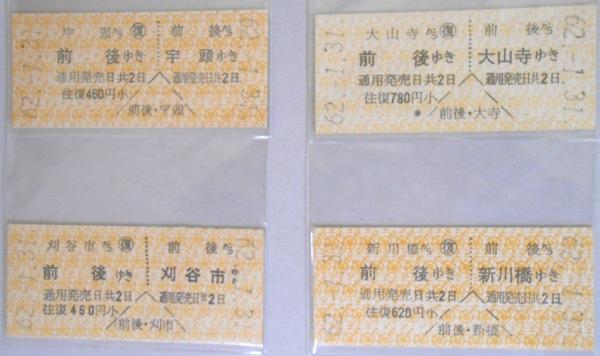 宇頭から ㊝ 前後から
前後ゆき 宇頭ゆき
通用発売日共2日 通用発売日共2日
往復460円小
前後・宇頭
62.-1.31.
大山寺から 復 前後から
前後ゆき 大山寺ゆき
通用発売日共2日 通用発売日共2日
往復780円小
※ 前後・大寺
62.-1.31.
刈谷市から 復 前後から
前後ゆき 刈谷市ゆき
通用発売日共2日 通用発売日共2日
往復460円小
前後・刈市
新川橋から 復 前後から
前後ゆき 新川橋ゆき
通用発売日共2日 通用発売日共2日
往復620円小
前後・新橋